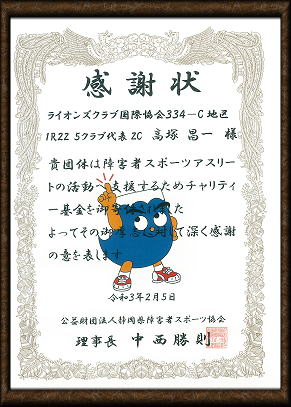 感謝状
ライオンズクラブ国際協会334-C地区
1R2Z 5クラブ代表ZC 高塚 昌一 様
貴団体は障害者スポーツアスリー
トの活動へ支援するためチャリティ
ー基金を御寄
よってその御厚志に対して深く感謝
の意を表します
令和3年2月5日
公益財団法人静岡県障害者スポーツ協会
理事長 中西勝則